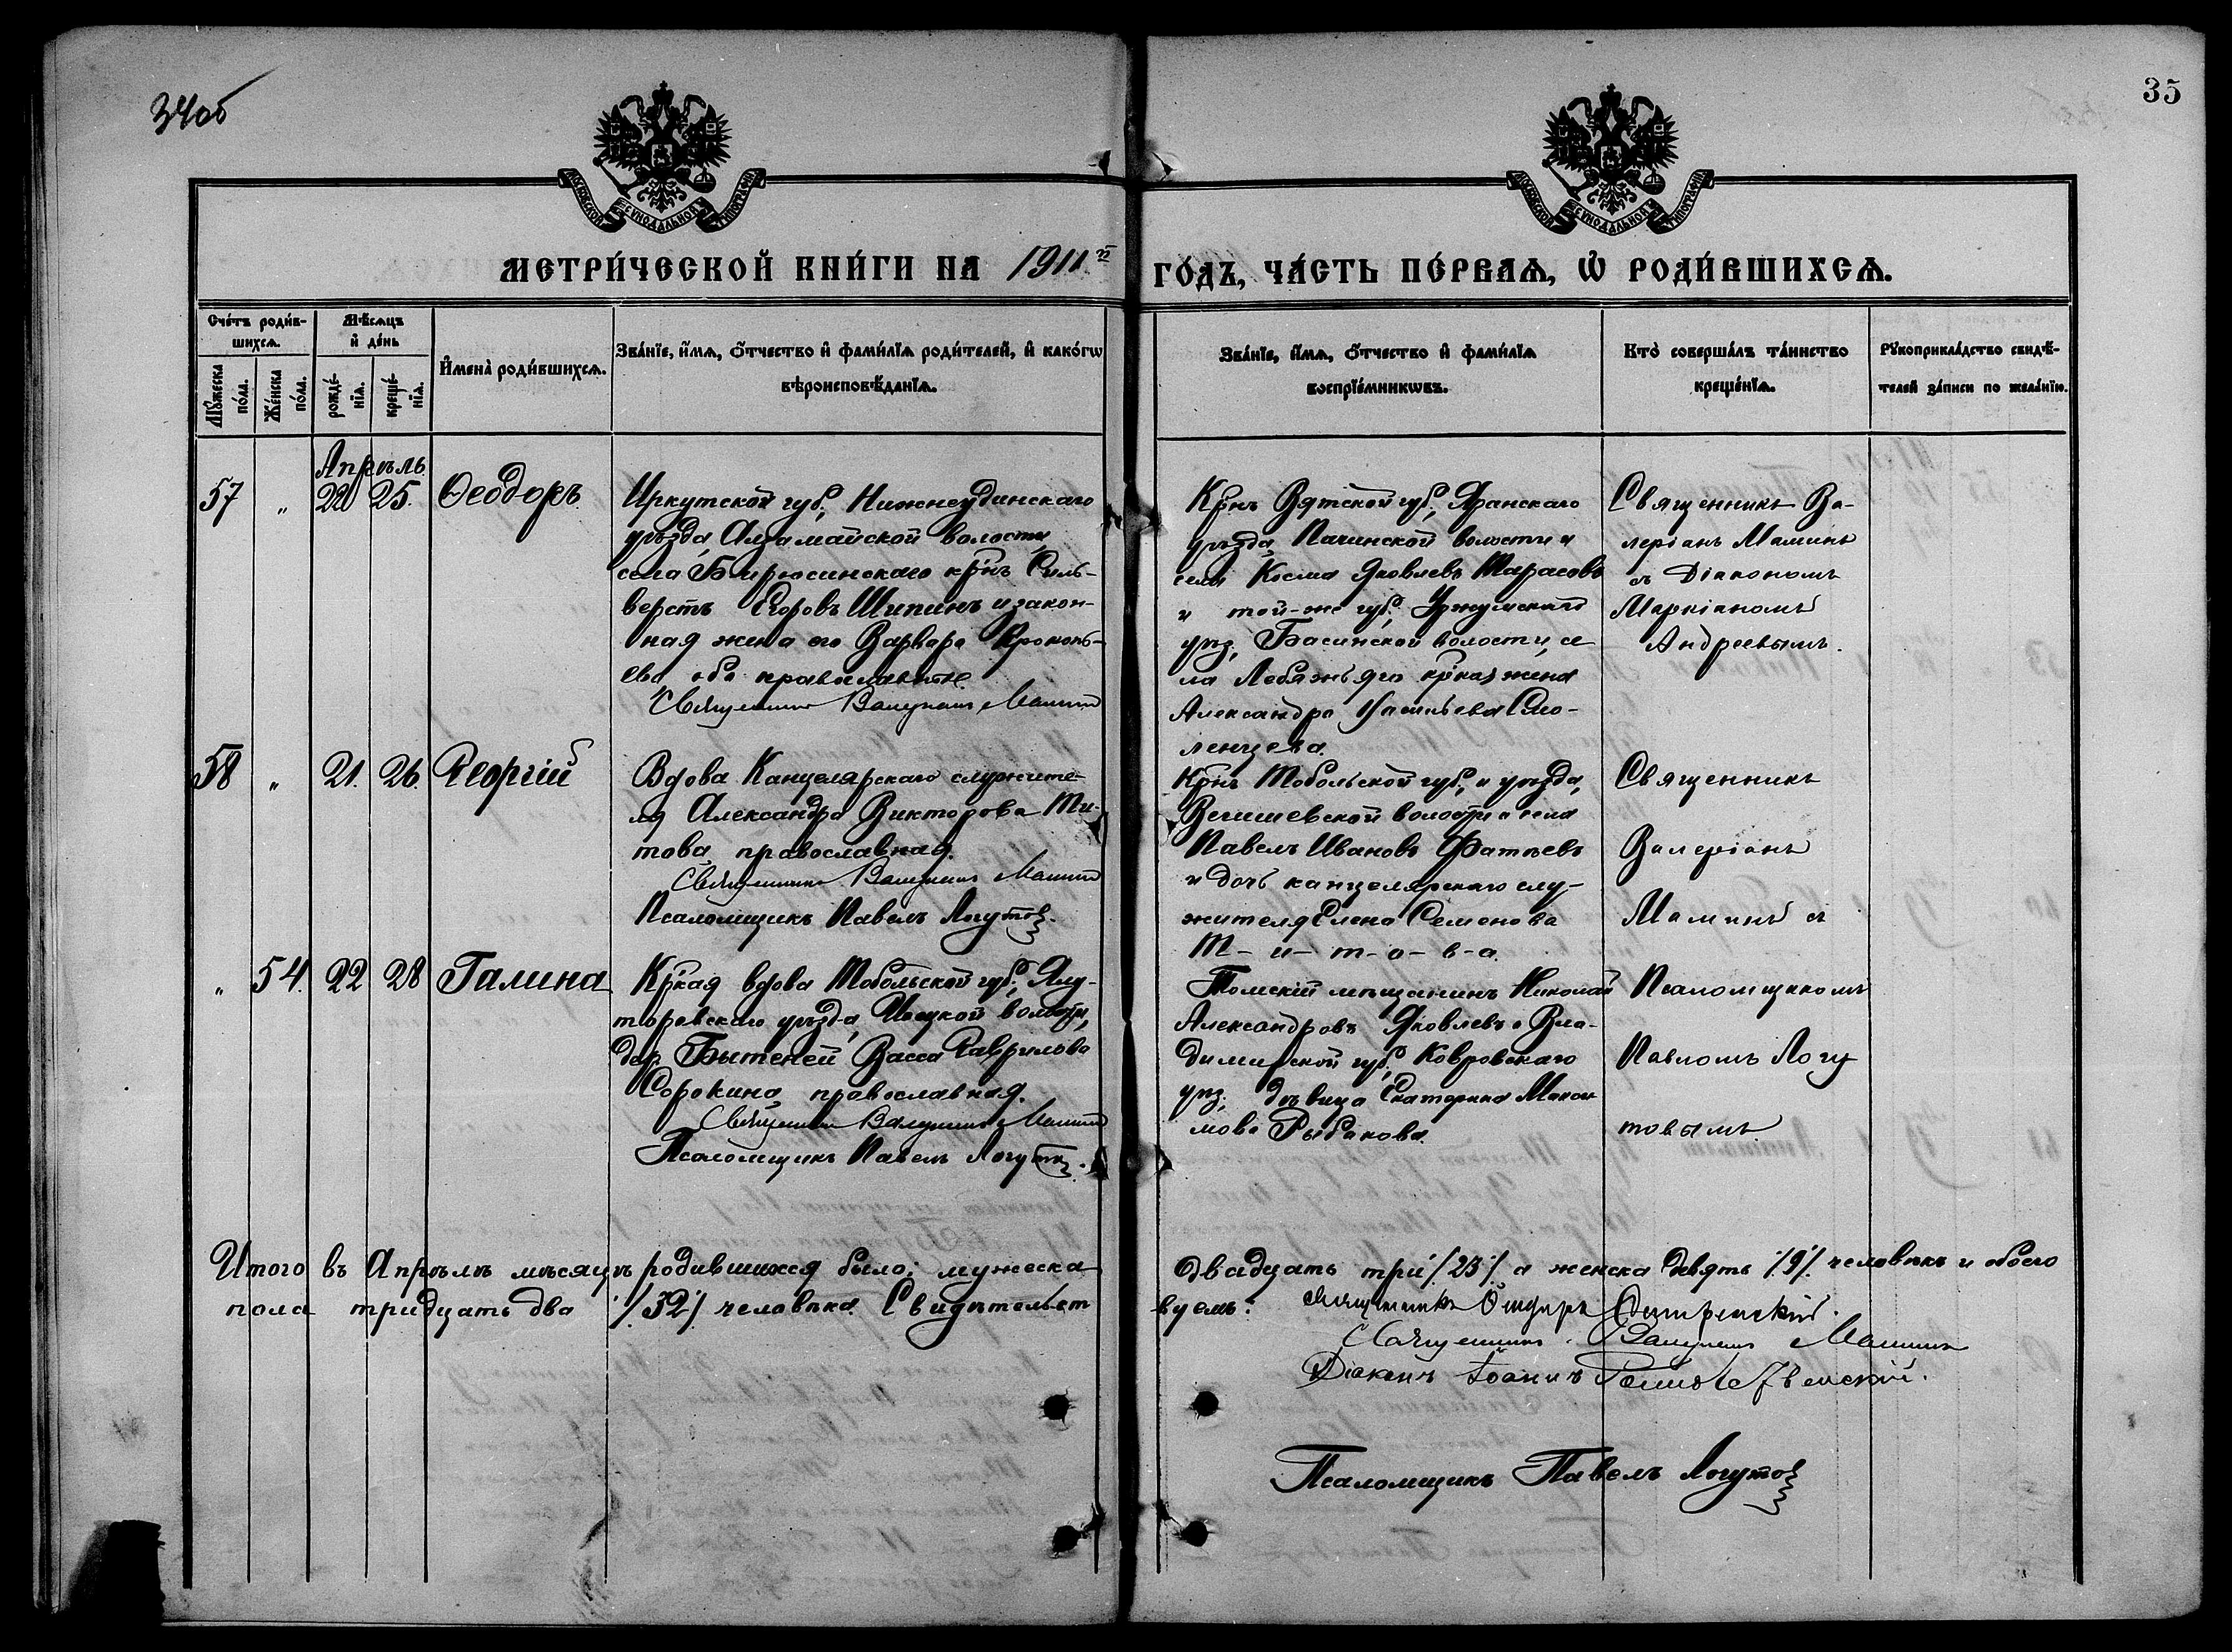 34об
35
МОСКОВСКОЙ СУНОДАЛЬНОЙ ТИПОГРАФІИ
МОСКОВСКОЙ СУНОДАЛЬНОЙ ТИПОГРАФІИ
МЕТРИ́ЧЕСКОЙ КНИ́ГИ НА 1911 й
ГО́ДЪ, ЧА́СТЬ ПЕ́РВАѦ, Ѡ РОДИ́ВШИХСѦ.
Сче́тъ роди́в-
шихсѧ.
Мꙋ́жеска
по́ла.
Же́нска
по́ла.
Мѣ́сѧцъ
и҆ де́нь
рожде́-
нїѧ.
креще́-
нїѧ.
И҆мена̀ роди́вшихсѧ.
Зва́нїе, и҆́мѧ, ѻ҆́тчество и҆ фамѝлїѧ роди́телей, и҆ како́гѡ
вѣроисповѣ́данїѧ.
Зва́нїе, и҆́мѧ, ѻ҆́тчество и҆ фамѝлїѧ
воспрїе́мникѡвъ.
Кто̀ соверша́лъ та́инство
креще́нїѧ.
Рꙋкоприкла́дство свидѣ́-
телей за́писи по жела́нїю.
Апрѣль
57 " 22 25. Ѳеодоръ
Иркутской губ., Нижнеудинскаго
уѣзда, Алзамайской волости,
села Бирюсинскаго кр҃нъ Силь-
верстъ Егоровъ Шипинъ и закон-
ная жена его Варвара Прокопь-
ева оба православные.
Священникъ Валеріанъ Маминъ
Кр҃нъ Вятской губ., Яранскаго
уѣзда, Пачинской волости и
села Косма Яковлевъ Тарасовъ
и той-же губ., Уржумскаго
уѣз., Басинской волости, се
ла Лебяжьяго кр҃ка жена
Александра Игнатьева Смо-
ленцева.
Священникъ Ва-
леріанъ Маминъ
съ Діакономъ
Маркіаномъ
Андреевымъ.
58 " 21. 26. Георгій
Вдова Канцелярскаго служите-
ля Александра Викторова Ти-
това, православная.
Священникъ Валеріанъ Маминъ
Псаломщикъ Павелъ Логутов.
Кр҃нъ Тобольской губ., и уѣзда,
волости и села
Павелъ Ивановъ Фатѣевъ
и дочь канцелярскаго слу-
жителя Елена Семенова
Т-и-т-о-в-а.
Священникъ
Валеріанъ
Маминъ съ
" 54. 22 28 Галина
Кр҃кая вдова Тобольской губ., Ялу-
торовскаго уѣзда, волости,
дер. Бытекей Васса Гаврилова
Сорокина, православная.
Священникъ Валеріанъ Маминъ
Псаломщикъ Павелъ Логутов.
Томскій мѣщанинъ Николай
Александровъ Яковлевъ и Вла-
димірской губ., Ковровскаго
уѣз. дѣвица Екатерина
Рыбакова.
Псаломщикомъ
Павломъ Логу
товымъ
Итого въ Апрѣлѣ мѣсяцѣ родившихся было: мужеска
двадцать три /23/ а женска девять /9/ человѣкъ и обоего
пола тридцать два /32/ человѣка. Свидѣтельст
вуемъ: Священникъ
Священникъ Валеріанъ Маминъ
Діаконъ Іоаннъ Рождественскій.
Псаломщикъ Павелъ Логутов